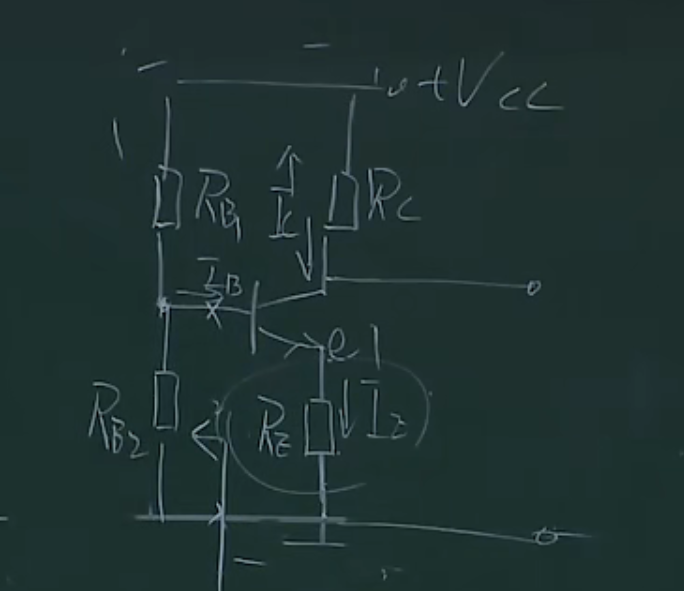 +Vcc
RB1 Ic Rc
IB
e1
RB2 RE IE